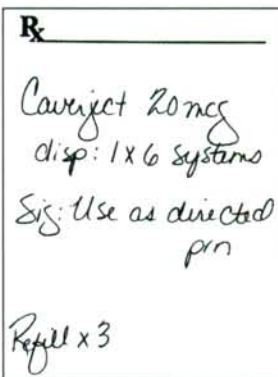 Rx
Caverject 20 mcg
disp: 1 x 6 systems
Sig: Use as directed
prn
Refill x 3